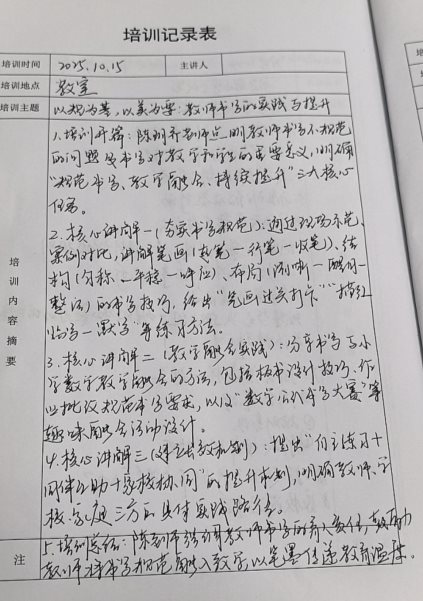 培训记录表
培训时间 2025.10.15 主讲人
培训地点 教室
培训主题 以规为基,以美为要:教师书写的实践与提升
培训内容摘要
1.培训开篇:陈老师点明教师书写不规范
的问题及书写对教学和学生的重要意义,明确
“规范书写、教学融合、持续提升”三大核心
任务。
2.核心讲解一(夯实书写规范):通过现场示范、
案例对比,讲解笔画(起笔—行笔—收笔)、结
构(匀称—平稳—呼应)、布局(清晰—
整洁)的书写技巧,给出“笔画过关打卡”“描红—
临写—默写”等练习方法。
3.核心讲解二(教学融合实践):分享书写与小
学数学教学融合的方法,包括板书设计技巧、作
业批改规范书写要求,以及“数学公式书写大赛”等
趣味融合活动设计。
4.核心讲解三(建立长效机制):提出“自主练习+
同伴互助+家校协同”的提升机制,明确教师、学
校、家庭三方的具体实践路径。
注
5.培训总结:陈老师强调教师书写的育人价值,鼓励
教师将书写规范融入教学,以笔墨传递教育温度。